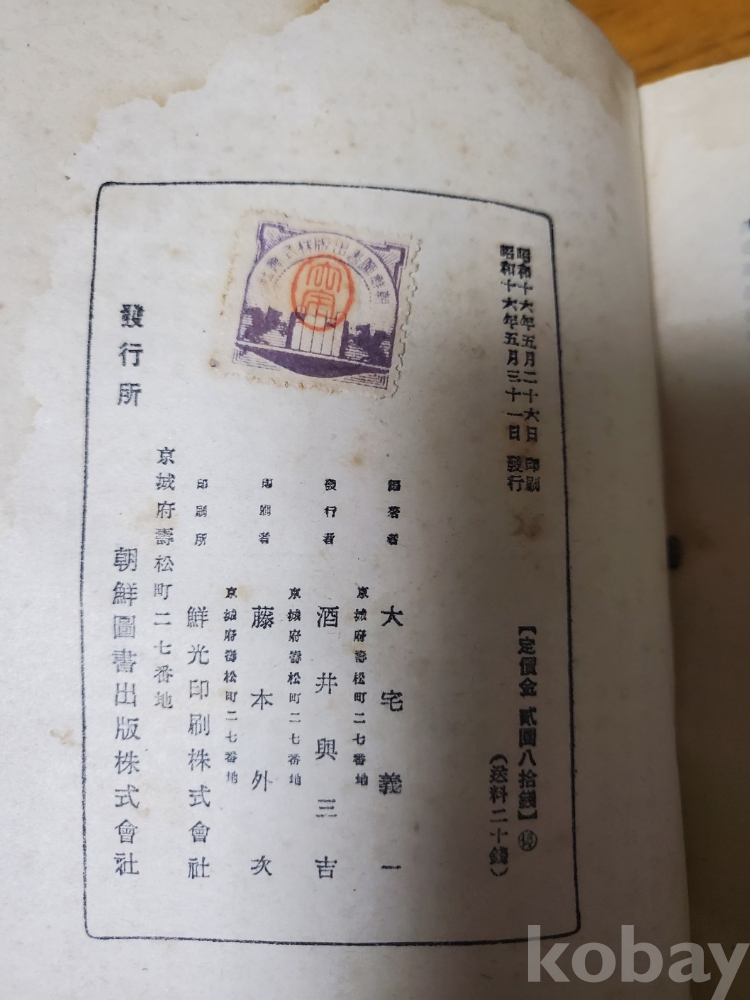 昭和十六年五月二十六日 印刷
昭和十六年五月三十一日 發行
【定價金 貳圓八拾錢】㊞
（送料二十錢）
朝鮮圖書出版株式會社
大宅
編著者 大宅義一
京城府壽松町二七番地
發行者 酒井與三吉
京城府壽松町二七番地
印刷者 藤本外次
京城府壽松町二七番地
印刷所 鮮光印刷株式會社
京城府壽松町二七番地
發行所 朝鮮圖書出版株式會社
kobay